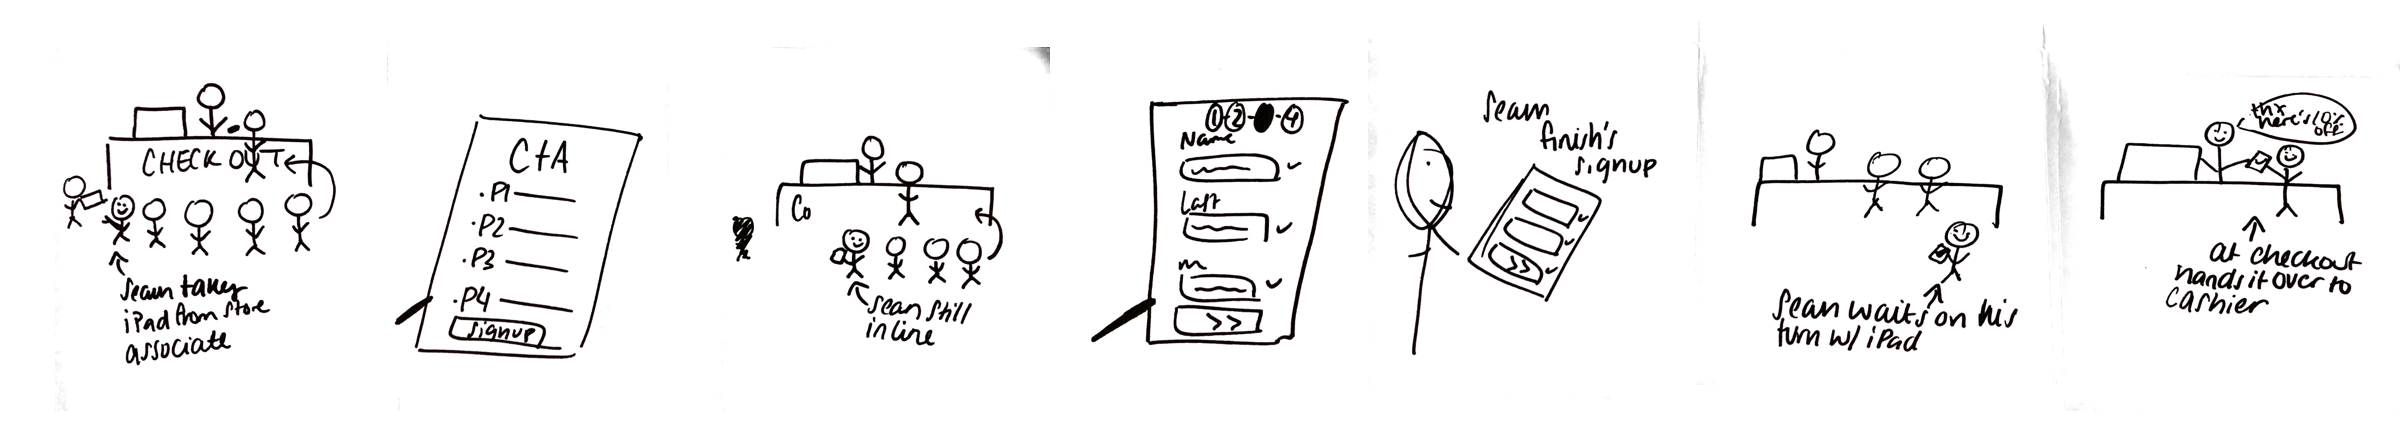 CHECK OUT
Sean takes
iPad from store
associate
CtA
. P1
. P2
. P3
. P4
signup
Co
Sean still
in line
1 2 4
Name
Last
m
>>
Sean
finish's
signup
>>
Sean waits on his
turn w/ iPad
thx
here's 10%
off
at checkout
hands it over to
cashier